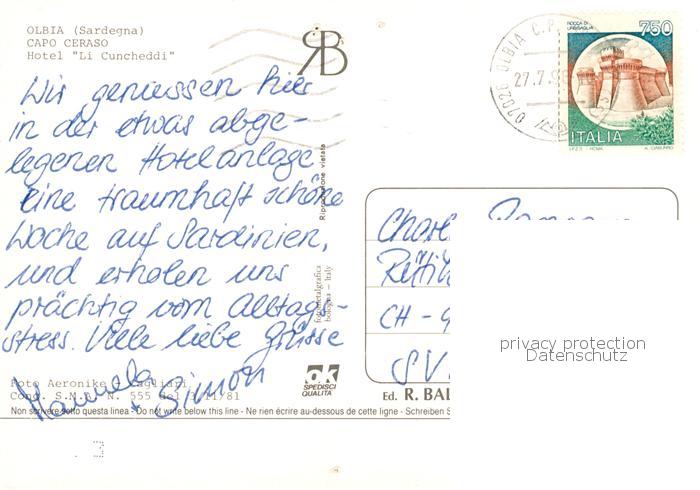 OLBIA (Sardegna)
CAPO CERASO
Hotel "Li Cuncheddi"
RB
Wir geniessen hier
in der etwas abge-
legenen Hotelanlage
eine traumhaft schöne
Woche auf Sardinien,
und erholen uns
prächtig vom Alltags-
stress. Viele liebe Grüsse
Manuela
+ Simon
Foto Aeronike - Cagliari
Conc. S.M.A. N. 555 del 3/11/81
Non scrivere sotto questa linea - Do not write below this line - Ne rien écrire au-dessous de cette ligne - Schreiben S
3
Riproduzione vietata
fotometalgrafica
bologna - Italy
OK
SPEDISCI
QUALITÀ
07026 OLBIA C.P.
27.7.9
ROCCA DI
URBISAGLIA
750
ITALIA
I.P.Z.S. - ROMA
CH - 9
SV
Ed. R. BAL
privacy protection
Datenschutz